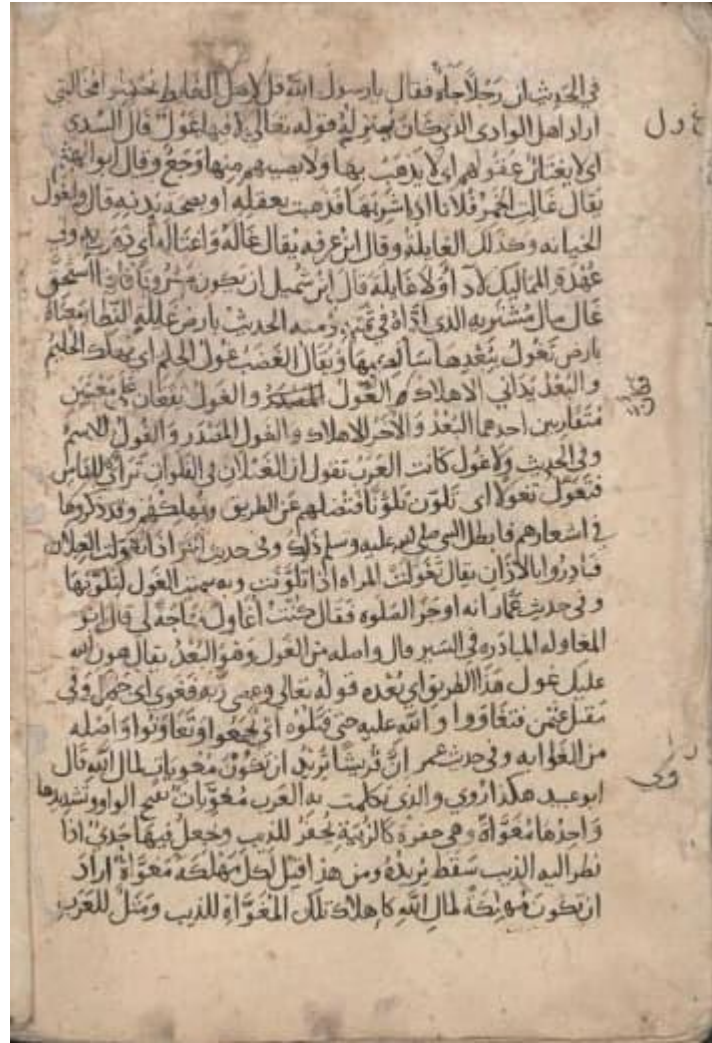 في الحديث ان رجلا جاه فقال يا رسول الله قل لاهل الغايط يحسنوا مخالتي
اراد اهل الوادي الذي كان ينزله قوله تعالي لا فيها غول قال السدي
اي لا يغتال عقولهم اي لا يذهب بها ولا يصيبهم منها وجع وقال ابو الهيثم
يقال غالت الخمر فلانا اذا شربها فذهبت بعقله او بصحة بدنه قال والغول
الخيانه وكذلك الغايلة وقال ابن عرفه يقال غاله واغتاله اي ذهب به وفي
عهدة المماليك لا دا ولا غايلة قال ابن شميل ان يكون مسروقا فاذا استحق
غال مال مشتريه الذي اداه في ثمنه ومنه الحديث بارض غايلة النطا معناه
بارض تغول ببعدها سالكيها ويقال الغضب غول الحلم اي يهلك الحليم
والبعد يداني الاهلاك والغول والغول يقعان علي معنيين
متقاربين احدهما البعد والاخر الاهلاك والغول المصدر والغول الاسم
وفي الحديث ولا غول كانت العرب تقول ان الغيلان في الفلوات تراي للناس
فتغول تغولا اي تلون تلونا فتضلهم عن الطريق وتهلكهم وقد ذكروها
في اشعارهم فابطل النبي صلي الله عليه وسلم ذلك وفي حديث اخر اذا تغولت الغيلان
فبادروا بالاذان يقال تغولت المراه اذا تلونت وبه سميت الغول لتلونها
وفي حديث عمار انه اوجز الصلوه فقال كنت اغاول حاجة لي قال ابو
المغاوله المبادره في السير قال واصله من الغول وهو البعد يقال هون الله
عليك غول هذا الطريق اي بعده قوله تعالي وعصي ربه فغوي اي جهل وفي
مقتل عثمن فتغاووا والله عليه حتي قتلوه اي تجمعوا وتعاونوا واصله
من الغوايه وفي حديث عمر ان قريشا تريد ان تكون مغويات لمال الله قال
ابو عبيد هكذا روي والذي تكلمت به العرب مغويات بفتح الواو وتشديدها
واحدها مغواة وهي حفرة كالزبية تحفر للذيب وجعل فيها جدي اذا
نظر اليه الذيب سقط يريده ومن هذا قيل لكل مهلكة مغواة اراد
ان تكون مهلكة لمال الله كاهلاك تلك المغواة للذيب ومثل للعرب
غ و ل